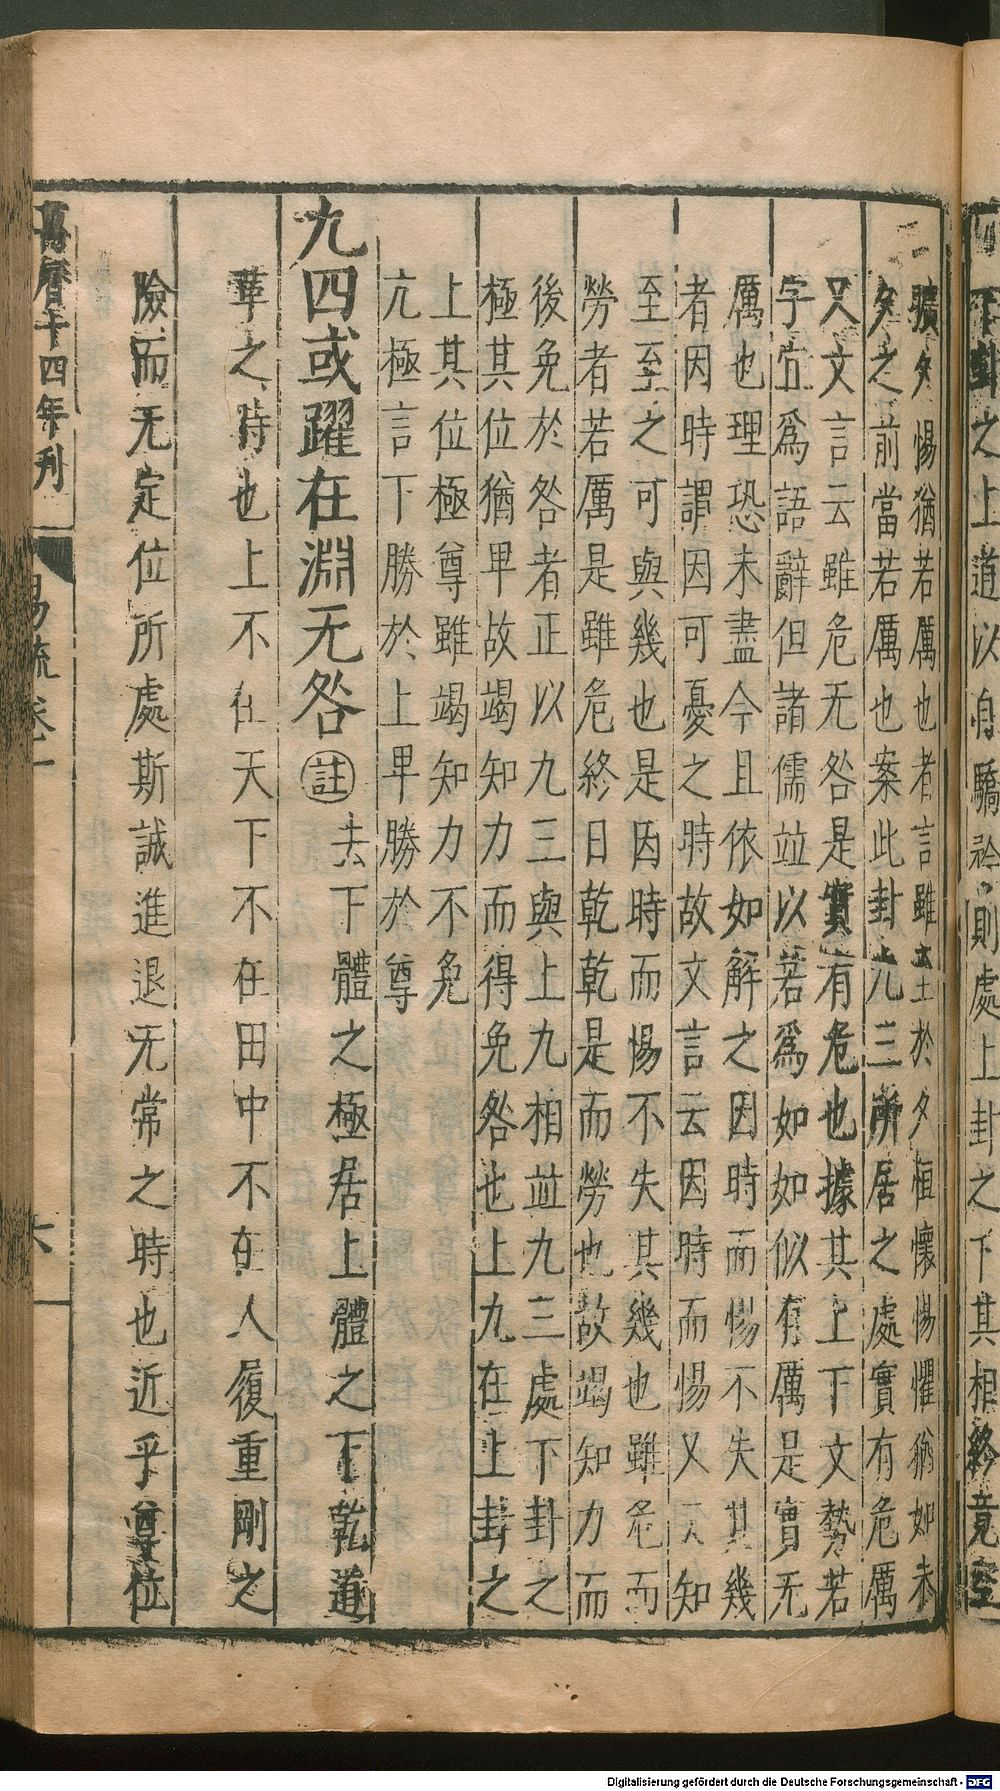 下卦之上道以自驕矜則處上卦之下其相終竟空
曠夕惕猶若厲也者言雖至於夕恒懷惕懼猶如未
夕之前當若厲也案此卦九三所居之處實有危厲
又文言云雖危无咎是實有危也據其上下文勢若
字宜爲語辭但諸儒竝以若爲如如似有厲是實无
厲也理恐未盡今且依如解之因時而惕不失其幾
者因時謂因可憂之時故文言云因時而惕又云知
至至之可與幾也是因時而惕不失其幾也雖危而
勞者若厲是雖危終日乾乾是而勞也故竭知力而
後免於咎者正以九三與上九相竝九三處下卦之
極其位猶卑故竭知力而得免咎也上九在上卦之
上其位極尊雖竭知力不免
亢極言下勝於上卑勝於尊
九四或躍在淵无咎註去下體之極居上體之下乾道
革之時也上不在天下不在田中不在人履重剛之
險而无定位所處斯誠進退无常之時也近乎尊位
萬曆十四年刊 易疏卷一 六
Digitalisierung gefördert durch die Deutsche Forschungsgemeinschaft - DFG